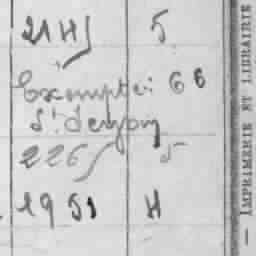 21 H 5
Exempté 66
St Jeryon
226 5
1951 H
— IMPRIMERIE ET LIBRAIRIE